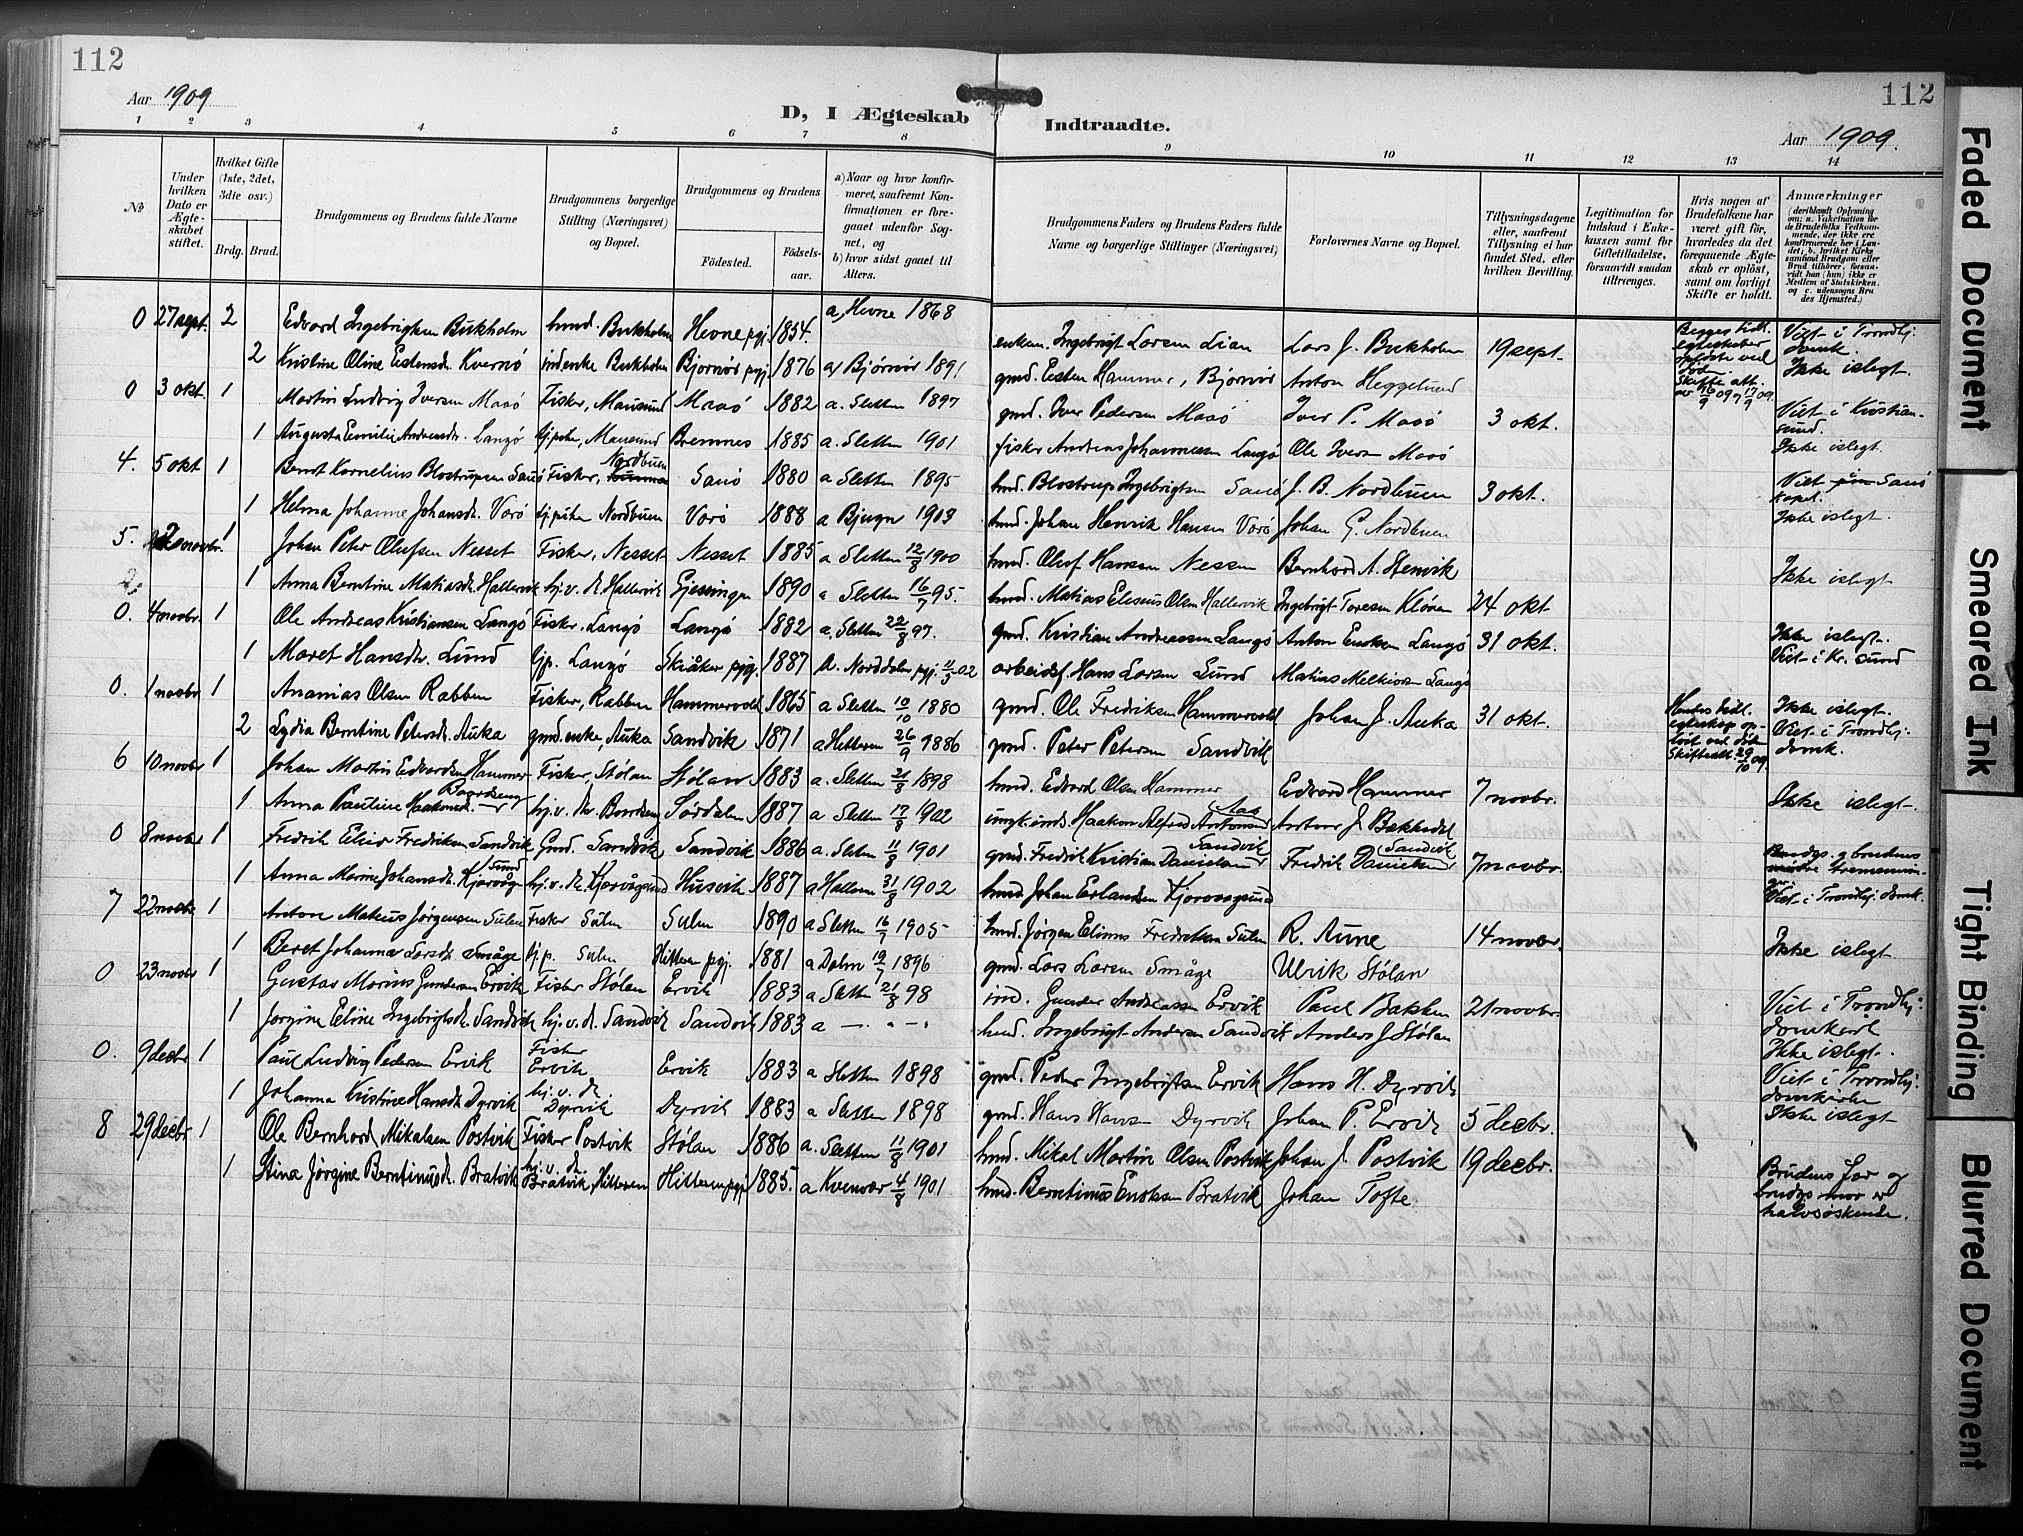 112
Aar 1909
D, I Ægteskab
Indtraadte.
112
Aar 1909.
1 2 3 4 5 6 7 8 9 10 11 12 13 14
No
Under hvilken Dato er Ægteskabet stiftet.
Hvilket Gifte (1ste, 2det, 3die osv.)
Brdg. Brud.
Brudgommens og Brudens fulde Navne
Brudgommens borgerlige Stilling (Næringsvei) og Bopæl.
Brudgommens og Brudens
Födested.
Födselsaar.
a) Naar og hvor konfirmeret, saafremt Konfirmationen er foregaaet udenfor Sognet, og
b) hvor sidst gaaet til Alters.
Brudgommens Faders og Brudens Faders fulde Navne og borgerlige Stillinger (Næringsvei)
Forlovernes Navne og Bopæl.
Tillysningsdagene eller, saafremt Tillysning ei har fundet Sted, efter hvilken Bevilling.
Legitimation for Indskud i Enkekassen samt for Giftetilladelse, forsaavidt saadan tiltrænges.
Hvis nogen af Brudefolkene har været gift før, hvorledes da det foregaaende Ægteskab er oplöst, samt om lovligt Skifte er holdt.
Anmærkninger (deriblandt Oplysning om: a. Vakcination for de Brudefolks Vedkommende, der ikke ere konfirmerede her i Landet; b. hvilket Kirkesamfund Brudgom eller Brud tilhörer, forsaavidt han (hun) ikke er Medlem af Statskirken, og c. udensogns Brudes Hjemsted.)
0 27 sept. 2 Edvard Ingebrigtsen Bukholm hmd. Bukholm Hevne pgj. 1854. a, Hevne 1868 Ingebrigt Larsen Lian Lars J. Bukholm 19 sept. Begges tidl. egteskaber opløste ved död. Viet i Trondhj: domk.
2 Kristine Oline Estensdr. Kvernö indenke Bukholm Bjørnør pgj. 1876 a, Bjørnør 1891 gmd. Esten Hammer, Bjørnør Anton Heggelund Ikke islegt.
0 3 okt. 1 Martin Ludvig Iversen Maasö Fisker, Mausund Maasö 1882 a. Sletten 1897 gmd. Iver Pedersen Maasö Iver P. Maasö 3 okt. Viet i Kristiansund.
1 Augusta Emilie Andreasdr. Langö Mausund Bremnes 1885 a. Sletten 1901 fisker Andreas Johannesen Langö Ole Iversen Maasö Ikke islegt.
4. 5 okt 1 Bernt Kornelius Blostrupsen Sanö Fisker, Nordbuen Sanö 1880 a Sletten 1895 hmd. Blostrup Ingebrigtsen Sanö J. B. Nordbuen 3 okt. Viet Sanö kapel.
1 Helma Johanne Johansdr. Vorö Nordbuen Vorö 1888 a Bjugn 1903 hmd. Johan Henrik Hansen Vorö Johan G. Nordbuen Ikke islegt.
5. novbr. 1 Johan Peter Olufsen Nesset Fisker, Nesset Nesset 1885 a Sletten 12/8 1900 hmd. Oluf Hansen Nessen Bernhard A. Stenvik
1 Anna Berntine Matiasdr. Hallervik hj. v. dr. Hallervik Gjessingen 1890 a Sletten 16/7 95. hmd. Matias Eliseus Olsen Hallervik Ingebrigt Toresen Kløven 24 okt Ikke islegt
0. 4 novbr 1 Ole Andreas Kristiansen Langö Fisker. Langö Langö 1882 a, Sletten 22/8 97. gmd. Kristian Andreassen Langö Anton Langö 31 okt. Ikke islegt.
1 Maret Hansdr. Lund tjp. Langö Skiåker pgj. 1887 A. Norddalen pgj. 11/5 02 arbeidsf. Hans Larsen Lund Matias Melkiorsen Langö Viet i Kr. sund
0. 1 novbr 1 Ananias Olsen Rabben Fisker, Rabben Hammervold 1865 a Sletten 10/10 1880 gmd. Ole Fredriksen Hammervold Johan J. Auka 31 okt. Hendes tidl. egteskap opløst ved død. Skifteatt. 29/10 09. Ikke islegt.
2 Lydia Berntine Petersdr. Auka gmd. enke, Auka Sandvik 1871 a Hitteren 26/9 1886 gmd. Peter Petersen Sandvik Viet i Trondhj: domk.
6 10 novbr 1 Johan Martin Edvardsen Hammer Fisker, Stölan Stölan 1883 a. Sletten 21/8 1898 hmd. Edvard Olsen Hammer Edvard Hammer 7 novbr.
1 Anna Pauline Haakonsdr. hj. v. dr. Sördalen 1887 a Sletten 17/8 1902 ungk. inds. Haakon Alfred Antonsen Aas Anton J. Bekkedal Ikke islegt.
0 8 novbr 1 Fredrik Elier Fredriksen Sandvik Gmd. Sandvik Sandvik 1886 a. Sletten 11/8 1901 gmd. Fredrik Kristian Danielsen Sandvik Fredrik Danielsen Sandvik 7 novbr. Brudgs. og brudens
1 Anna Marine Johansdr. Kjørvågsund hj. v. dr. Kjørvågsund Husvik 1887 a Hitteren 31/8 1902 hmd. Johan Erlandsen Kjørvaagsund Viet i Trondhj: domk.
7 22 novbr 1 Anton Mateus Jørgensen Sulen Fisker Sulen Sulen 1890 a Sletten 16/7 1905 hmd. Jørgen Elinus Fredriksen Sulen R. Aune 14 novbr.
1 Beret Johanna Larsdr. Småge tj. p. Sulen Hitteren pgj. 1881 a Dolm 19/7 1896 gmd. Lars Larsen Småge Ulrik Stölan Ikke islegt
0 23 novbr 1 Gustav Marius Gundersen Ervik Fisker Stölan Ervik 1883 a Sletten 21/8 98 ind. Gunder Andreassen Ervik Paul Bakken 21 novbr. Viet i Trondhj: domkerk
1 Jørgine Eline Ingebrigtsdr. Sandvik hj. v. dr. Sandvik Sandvik 1883 a —. " —. hmd. Ingebrigt Andersen Sandvik Anders J Stölan Ikke islegt.
0. 9 decbr 1 Paul Ludvig Pedersen Ervik Fisker Ervik Ervik 1883 a Sletten 1898 gmd. Peder Ingebrigtsen Ervik Hans H. Dyrvik Viet i Trondhj: domkerken
1 Johanna Kristine Hansdr. Dyrvik hj. v. dr. Dyrvik Dyrvik 1883 a Sletten 1898 gmd. Hans Hansen Dyrvik Johan P. Ervik 5 decbr. Ikke islegt
8 29 decbr 1 Ole Bernhard Mikalsen Postvik Fisker Postvik Stölan 1886 a. Sletten 11/8 1901 hmd. Mikal Martin Olsen Postvik Johan J. Postvik 19 decbr.
1 Stina Jørgine Berntinusdr. Bratvik hj. v. dr. Bratvik, Hitteren Hitteren pgj 1885. a Kvenvær 4/8 1901 hmd. Berntinus Eriksen Bratvik Johan Tofte Brudens far og brudgs mor er halvsøskende.
Faded Document
Smeared Ink
Tight Binding
Blurred Document